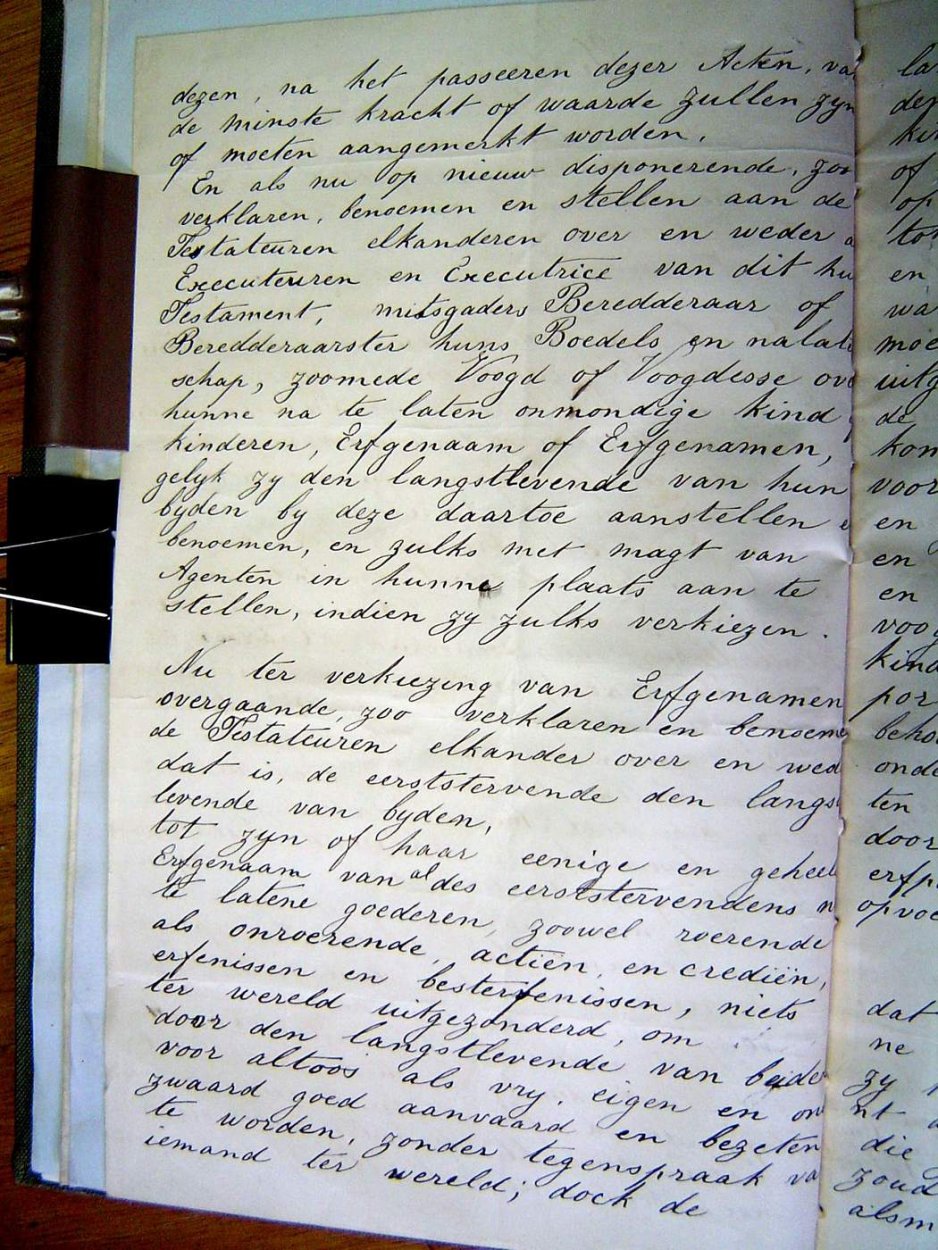 dezen, na het passeeren dezer Acten, va
de minste kracht of waarde zullen zyn
of moeten aangemerkt worden.
En als nu op nieuw disponerende, zoo
verklaren, benoemen en stellen aan de
Testateuren elkanderen over en weder a
Executeuren en Executrice van dit hu
Testament, mitsgaders Beredderaar of
Beredderaarster huns Boedels en nalat
schap, zoomede Voogd of Voogdesse ove
hunne na te laten onmondige kind
kinderen, Erfgenaam of Erfgenamen,
gelyk zy den langstlevende van hun
byden by deze daartoe aanstellen e
benoemen, en zulks met magt van
Agenten in hunne plaats aan te
stellen, indien zy zulks verkiezen.
Nu ter verkiezing van Erfgenamen
overgaande, zoo verklaren en benoeme
de Testateuren elkander over en wed
dat is, de eerststervende den langs
levende van byden,
tot zyn of haar eenige en geheel
Erfgenaam van al des eerststervendens n
te latene goederen, zoowel roerende
als onroerende, actien, en crediën,
erfenissen en besterfenissen, niets
ter wereld uitgezonderd, om
door den langstlevende van beide
voor altoos als vry, eigen en on
zwaard goed aanvaard en bezeten
te worden, zonder tegenspraak va
iemand ter wereld; dock de
la
der
kin
of
op
tot
en
wa
moe
uitg
de
kom
voor
en
en
en
voog
kind
por
beho
onde
ten
door
erfp
opvoe
dat
ne
zy
nt
die
zoud
alsm